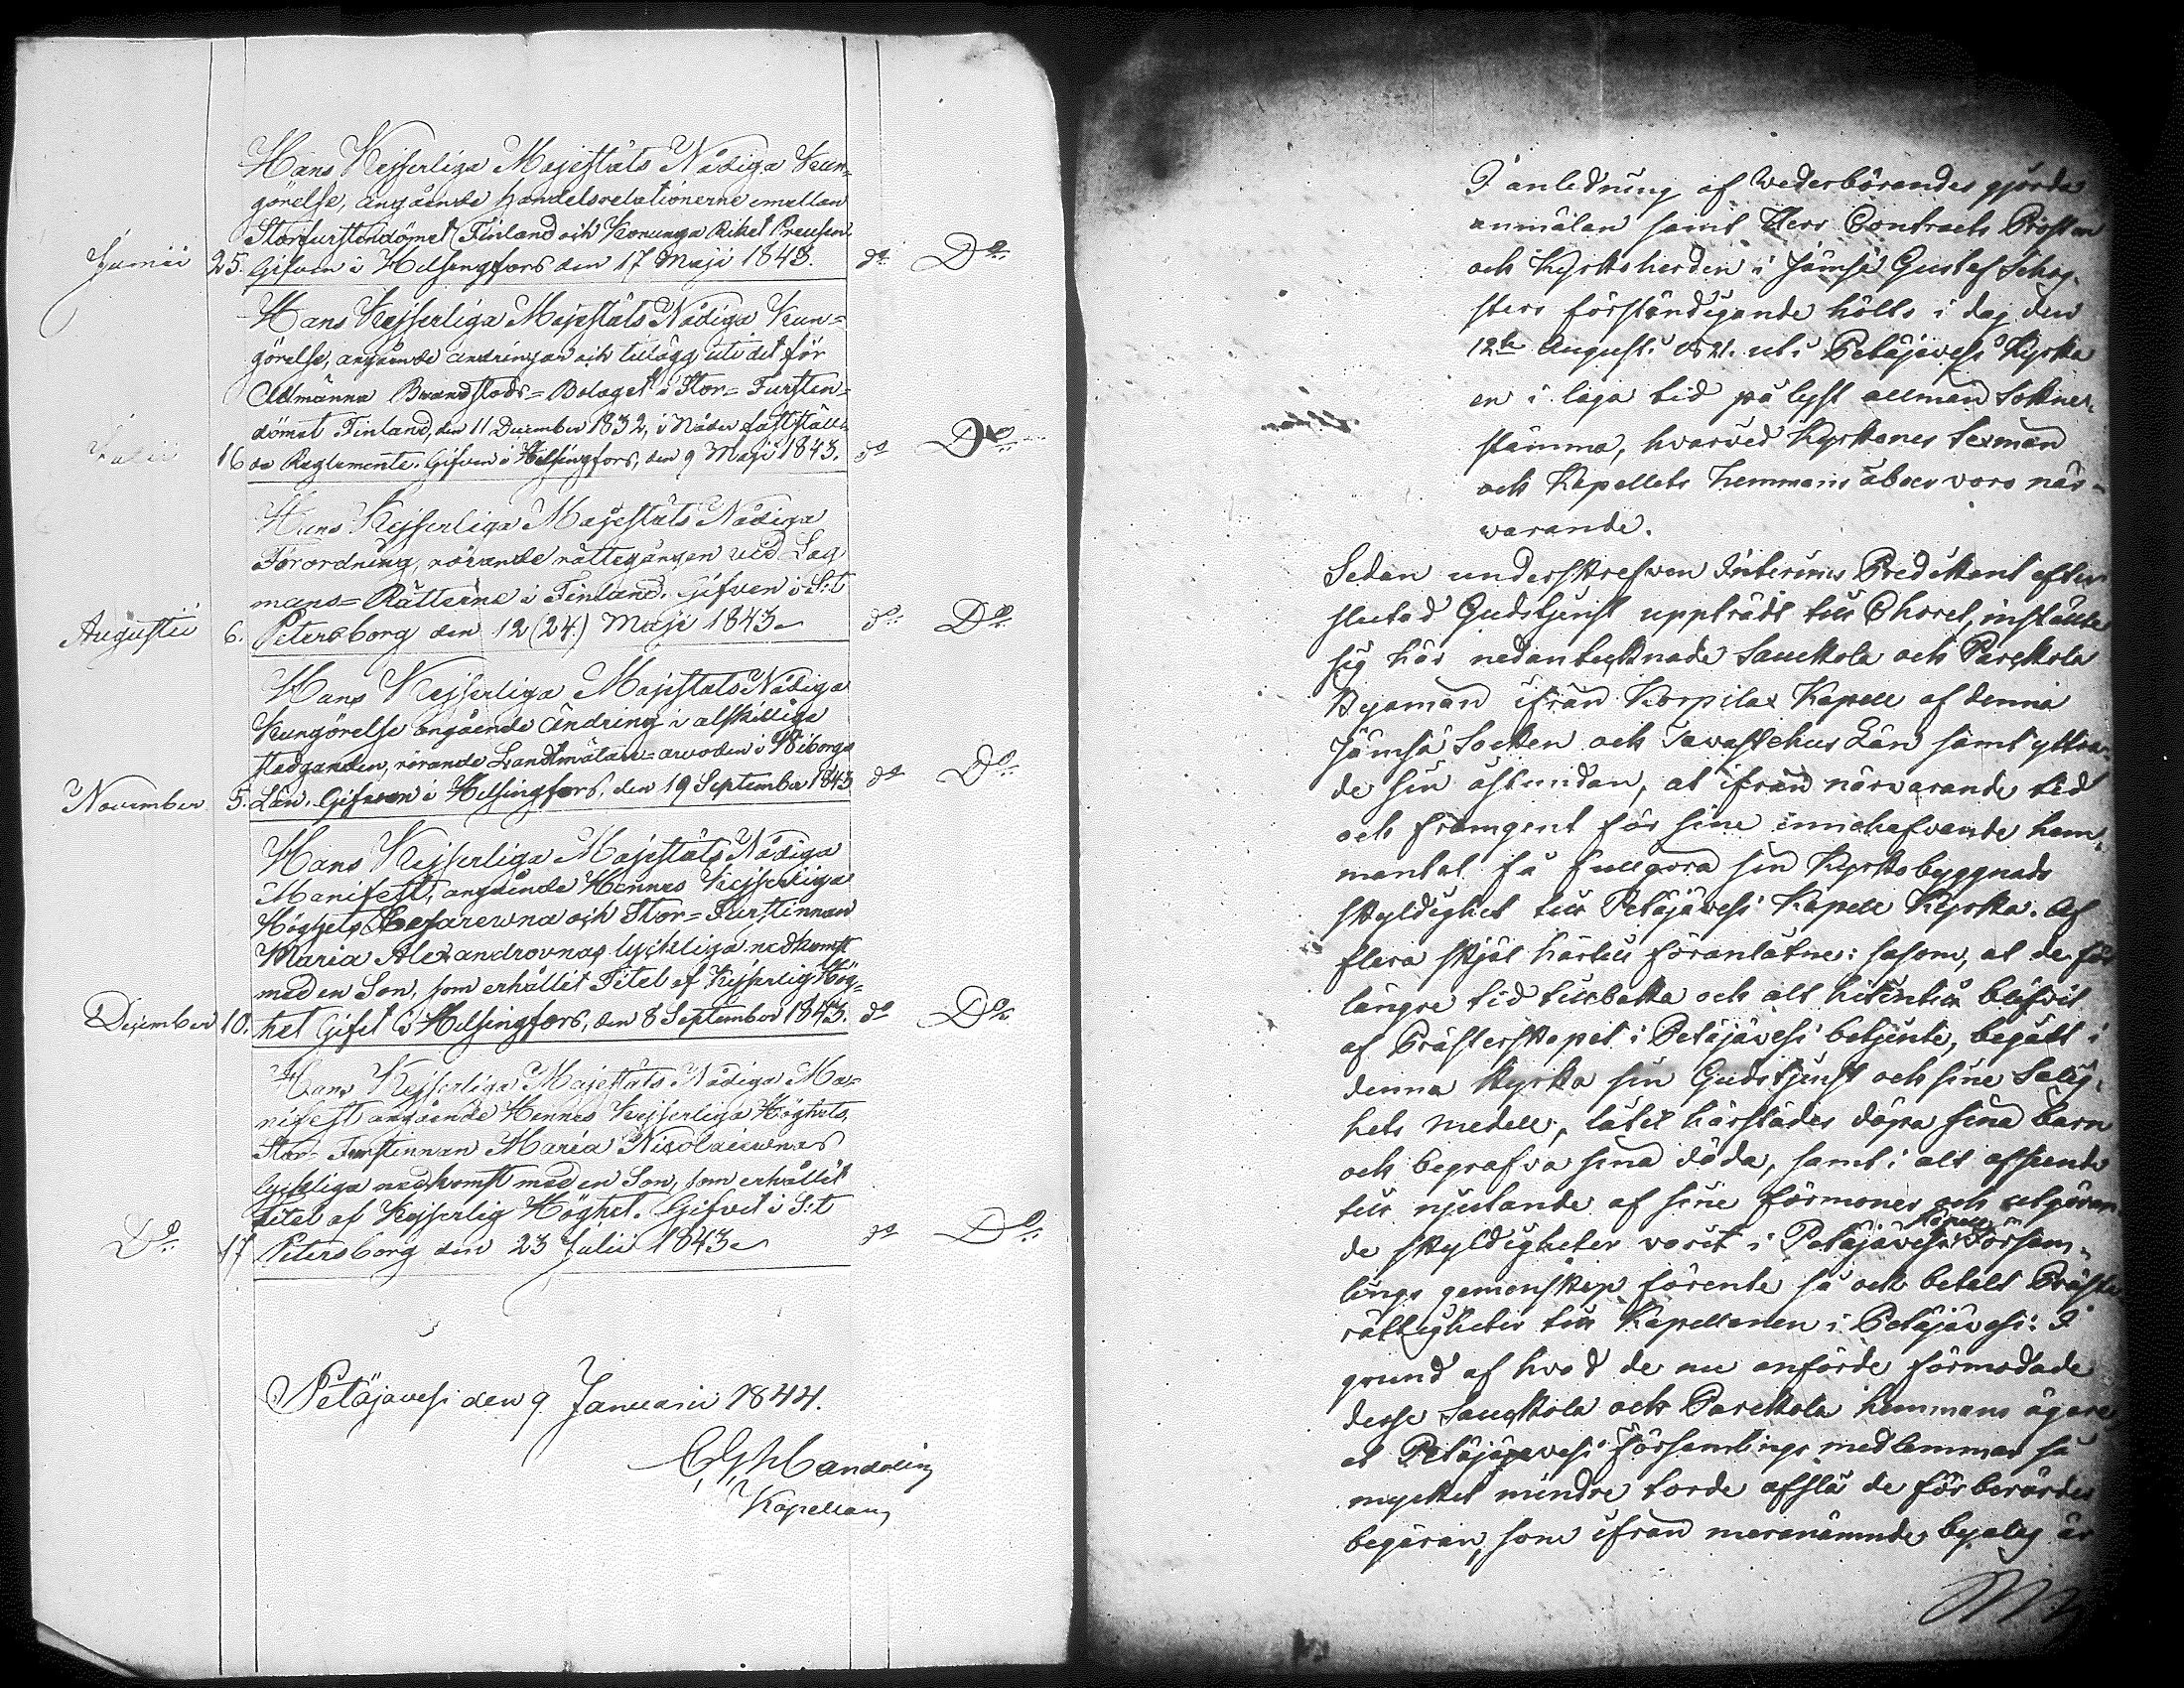 Hans Kejserliga Majestäts Nådiga Kun-
görelse, angående handelsrelationerne emellan
Storfurstendömet Finland och Konunga Riket Preusen.
Junii 25. Gifven i Helsingfors den 17 Maji 1843. do Do
Hans Kejserliga Majestäts Nådiga Kun=
görelse, angående ändringar och tillägg uti det för
Allmänna Brandstods=Bolaget i Stor=Fursten=
dömet Finland, den 11 December 1832, i Nåder fastställ-
Julii 16 da Reglemente. Gifven i Helsingfors, den 9 Maji 1843. do Do
Hans Kejserliga Majestäts Nådiga
Förordning, rörande rättegången vid Lag
mans=Rätterne i Finland. Gifven i S:t
Augustii 6. Petersborg den 12 (24.) Maji 1843 do Do
Hans Kejserliga Majestäts Nådiga
Kungörelse angående ändring i alskillige
stadganden, rörande Landtmätare=arvoden i Wiborgs
November 5. Län. Gifven i Helsingfors, den 19 September 1843 do Do
Hans Kejserliga Majestäts Nådiga
Manifest, angående Hennes Kejserliga
Höghets Cesarewna och Stor=Furstinnan
Maria Alexandrovnas lyckliga nedkomst
med en Son, som erhållit Titel af Kejserlig Hög=
December 10. het Gifvet i Helsingfors, den 8 September 1843. do Do
Hans Kejserliga Majestäts Nådiga Ma=
nifest angående Hennes Kejserliga Höghets,
Stor-Furstinnan Maria Nikolaiewnas
lyckliga nedkomst med en Son, som erhållit
titel af Kejserlig Höghet. Gifvet i S:t
Do 17 Petersborg den 23 Julii 1843 do Do
Petäjävesi den 9 Januarii 1844.
Mandelin
Kapellan
I anledning af wederbörandes gjorde
anmälan samt Herr Contracts Prosten
och Kyrkoherden i Jämsä Gustaf
sters förständigande hölts i dag den
12te Augusti 1821. uti Petäjävesi Kyrka
en i laga tid pålyst allmän Sokne-
stämma, hvarvid Kyrkones sexmän
och Kapellets Hemmans åboer voro när-
warande.
Sedan underskrefven Interims Predikant efter
slutad Gudstjenst uppträdt till Choret, instälte
sig här nedantecknade Sauckola och Parckola
Byamän ifrån Korpilax Kapell af denna
Jämsä Socken och Tavastehus Län samt yttra-
de sin åstundan, at ifrån närvarande tid
och framgent för sine innehafvande hem-
mantal få fullgöra sin Kyrkobyggnads
skyldighet till Petäjävesi Kapell Kyrka. Af
flera skjäl härtill föranlåtne: såsom, at de för
längre tid tillbaka och alt hitintills blifvit
af Prästerskapet i Petäjävesi betjente, begått i
denna Kyrka sin Gudstjenst och sine Salig-
hets medell, låtit härstädes döpa sina barn
och begrafva sina döda, samt i alt afseende
till njutande af sine förmoner och utgöran
de skyldigheter varit i Petäjävesi Kapell Församl-
lings gemenskap förente så ock betalt Präste
rättigheter till Kapellanen i Petäjävesi: I
grund af hvad de nu anförde förmodade
desse Sauckola och Parckola hemmans ägare
at Petäjävesi församlings medlemmar så
myckit mindre torde afslå de förberörde
begäran, som ifrån meranämnde byalag är